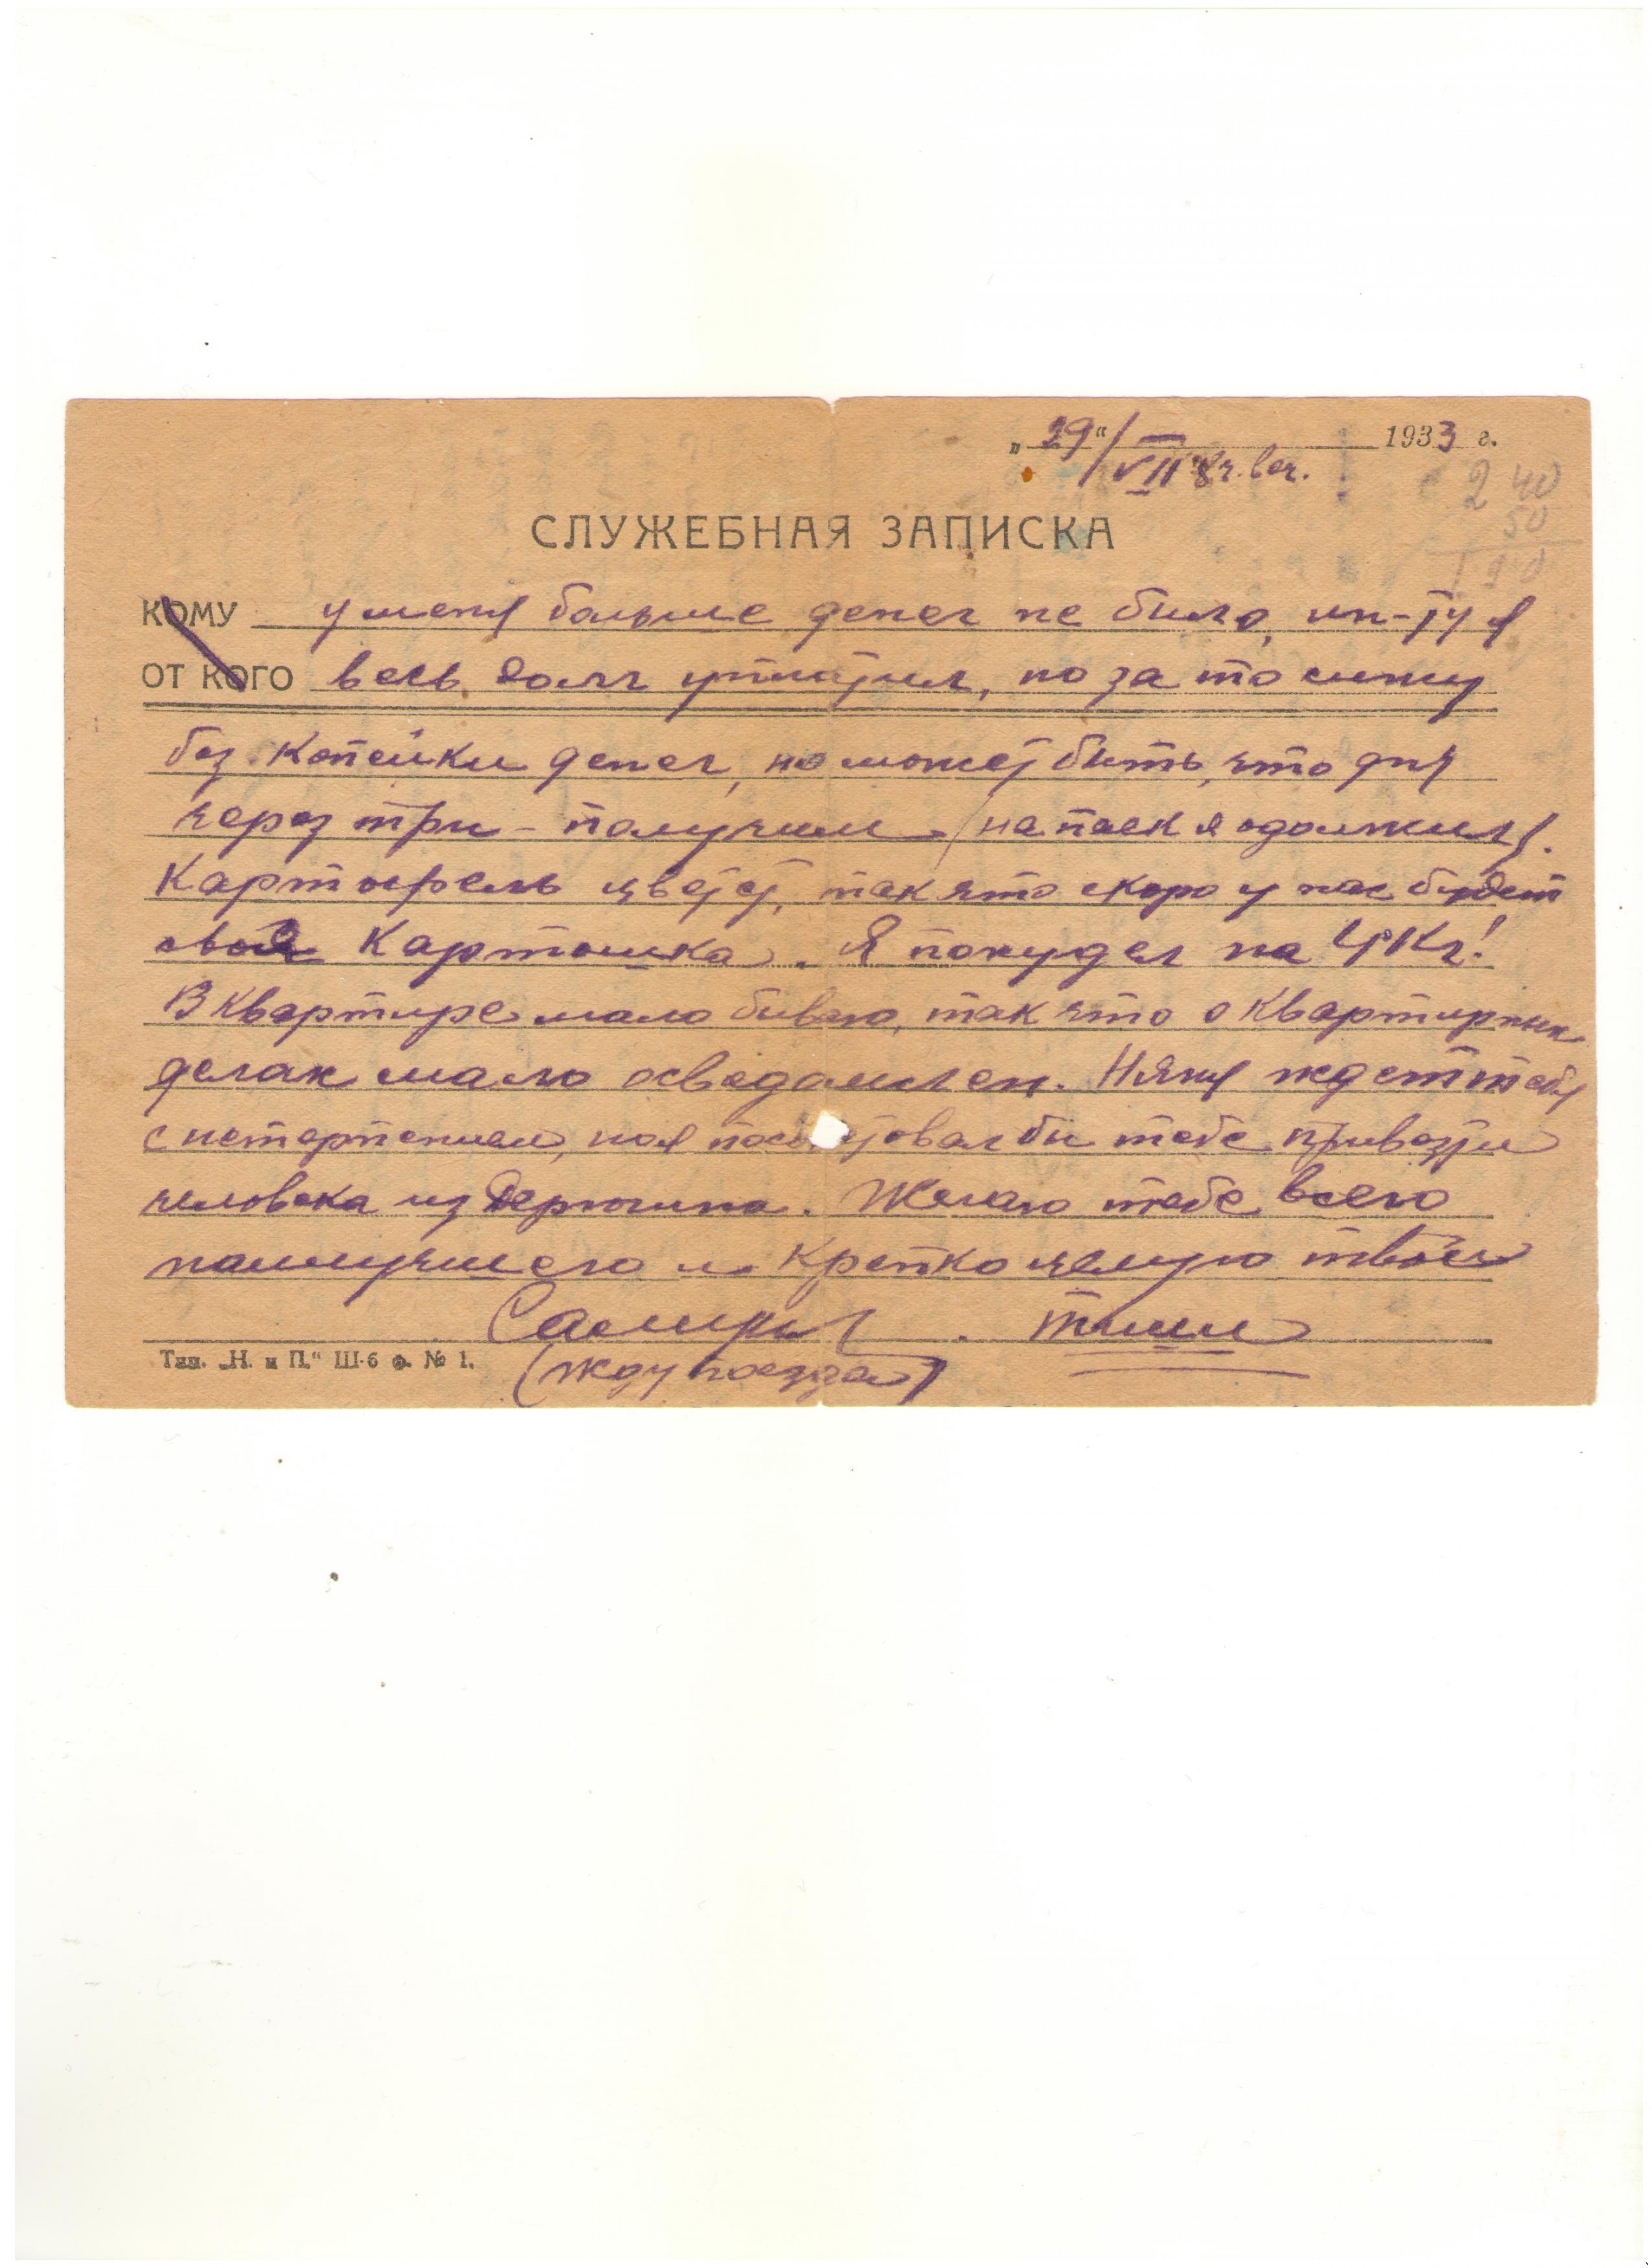 „29“/VII 8 ч. веч. 1933 г.
2 40
50
1 90
СЛУЖЕБНАЯ ЗАПИСКА
КОМУ у меня больше денег не было, ин-ту я
ОТ КОГО весь долг уплатил, но за то сижу
без копейки денег, но может быть, что дня
через три - получим (на паек я одолжил).
Картофель цветет, так что скоро у нас будет
своя картошка. Я похудел на 4 кг!
В квартире мало бываю, так что о квартирных
делах мало осведомлен. Няня ждет тебя
с нетерпением, но я пос товал бы тебе привезти
человека из . Желаю тебе всего
наилучшего и крепко целую твой
(жду поезда)
Тип. „Н. и П.“ Ш-6 ф. № 1.